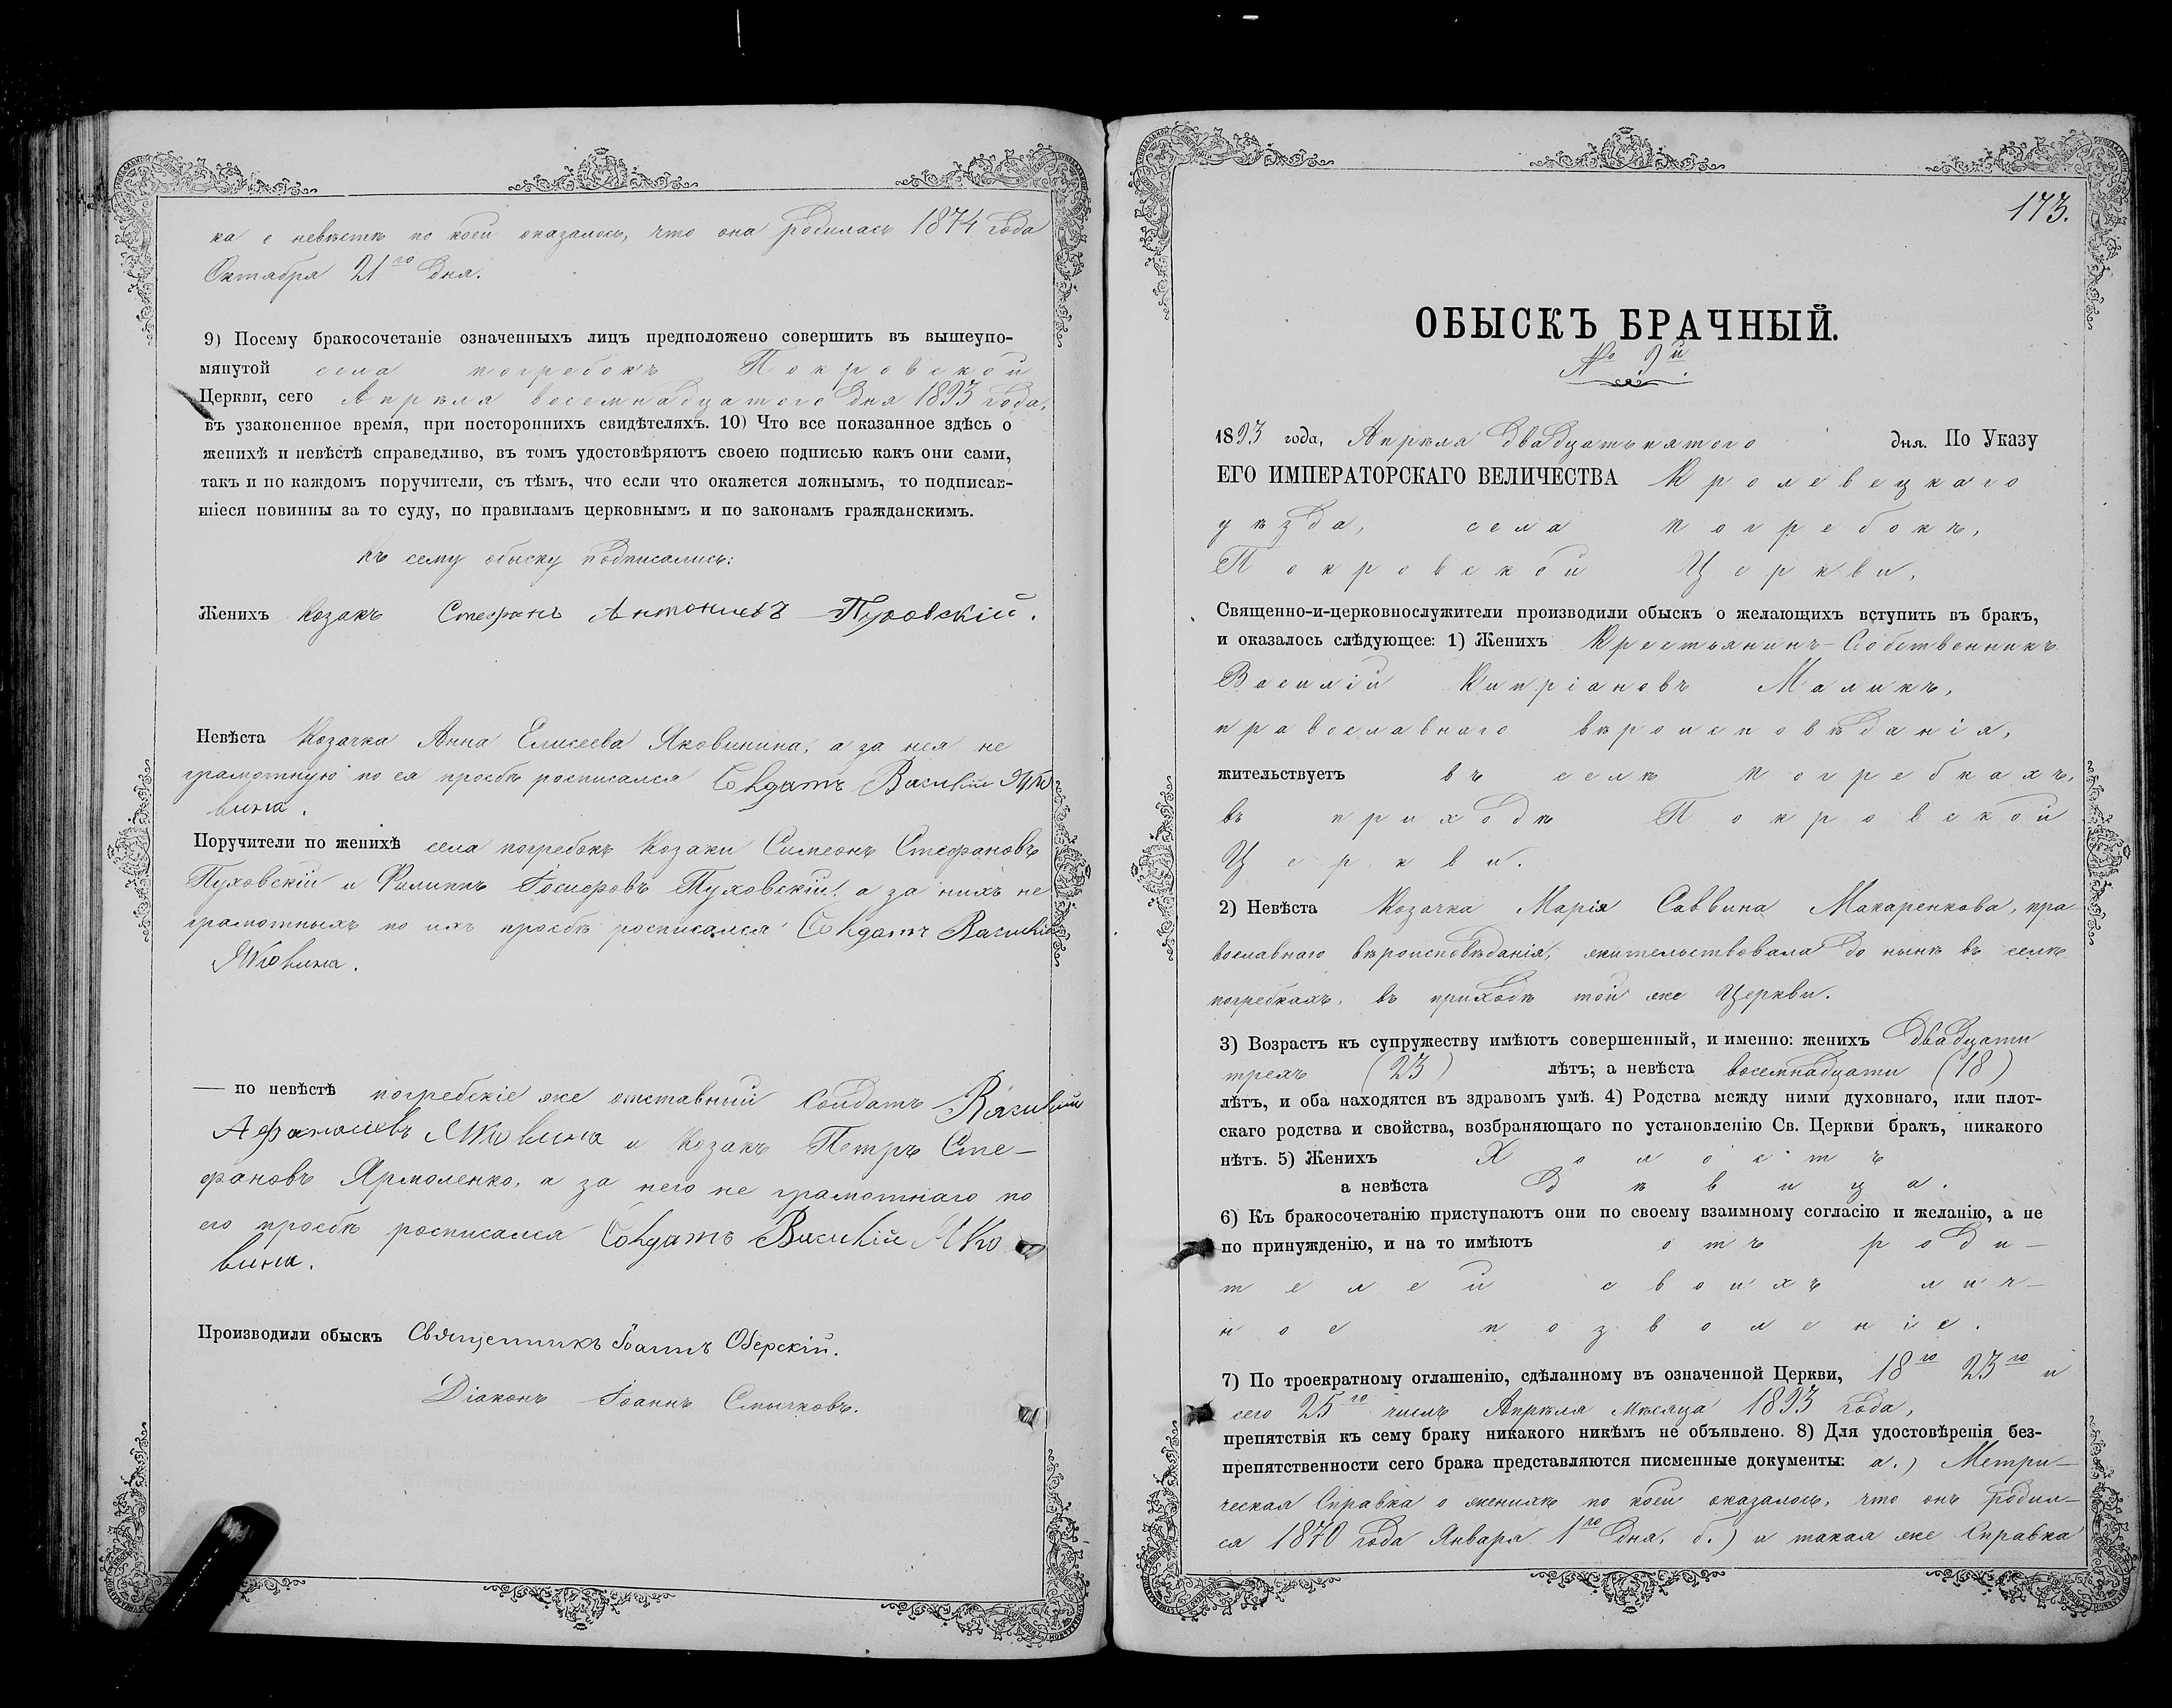 ка о невѣстѣ по коей оказалось, что она родилась 1874 года
Октября 21го дня.
9) Посему бракосочетаніе означенныхъ лицъ предположено совершить въ вышеупо-
мянутой села погребокъ Покровской
Церкви, сего Апрѣля восемнадцатого дня 1893 года,
въ узаконенное время, при постороннихъ свидѣтеляхъ. 10) Что все показанное здѣсь о
женихѣ и невѣстѣ справедливо, въ томъ удостовѣряютъ своею подписью какъ они сами,
такъ и по каждомъ поручители, съ тѣмъ, что если что окажется ложнымъ, то подписав-
шіеся повинны за то суду, по правиламъ церковнымъ и по законамъ гражданскимъ.
Къ сему обыску подписались:
Женихъ Козакъ Стефанъ Антониевъ Пуховскій.
Невѣста Козачка Анна Елисеева Яковинина, а за нея не
грамотную по ея просьбѣ росписался Солдатъ Василій Яко
вина.
Поручители по женихѣ села погребокъ Козаки Симеонъ Стефановъ
Пуховскій и Филиппъ Іосифовъ Пуховскій, а за нихъ не
грамотныхъ по ихъ просьбѣ росписался Солдатъ Василій
Яковина.
— по невѣстѣ погребскіе же отставный Солдатъ Василий
Афанасиевъ Яковина и Козакъ Петръ Сте-
фановъ Ярмоленко, а за него не грамотнаго по
его просьбѣ росписался Солдатъ Василій Яко
вина.
Производили обыскъ Священникъ Іоаннъ Озерскій.
Діаконъ Іоаннъ Смычковъ.
173.
ОБЫСКЪ БРАЧНЫЙ.
№ 9й.
1893 года, Апрѣля двадцать пятого дня. По Указу
ЕГО ИМПЕРАТОРСКАГО ВЕЛИЧЕСТВА Кролевецкаго
уѣзда, села погребокъ,
Покровской Церкви,
Священно-и-церковнослужители производили обыскъ о желающихъ вступить въ бракъ,
и оказалось слѣдующее: 1) Женихъ Крестьянинъ-Собственникъ
Василій Кипріановъ Маликъ,
православнаго вѣроисповѣданія,
жительствуетъ въ селѣ погребкахъ,
въ приходѣ Покровской
Церкви.
2) Невѣста Козачка Марія Саввина Макаренкова, пра
вославнаго вѣроисповѣданія, жительствовала до нынѣ въ селѣ
погребкахъ, въ приходѣ той же Церкви.
3) Возрастъ къ супружеству имѣютъ совершенный, и именно: женихъ двадцати
трехъ (23) лѣтъ; а невѣста восемнадцати (18)
лѣтъ, и оба находятся въ здравомъ умѣ. 4) Родства между ними духовнаго, или плот-
скаго родства и свойства, возбраняющаго по установленію Св. Церкви бракъ, никакого
нѣтъ. 5) Женихъ Холостъ
а невѣста дѣвица.
6) Къ бракосочетанію приступаютъ они по своему взаимному согласію и желанію, а не
по принужденію, и на то имѣютъ отъ роди-
телей своихъ лич-
ное позволеніе.
7) По троекратному оглашенію, сдѣланному въ означенной Церкви, 18го 23го и
сего 25го числъ Апрѣля мѣсяца 1893 года,
препятствія къ сему браку никакого никѣмъ не объявлено. 8) Для удостовѣренія без-
препятственности сего брака представляются писменные документы: а.) Метри-
ческая Справка о женихѣ по коей оказалось, что онъ родил-
ся 1870 года Января 1го дня, б.) и такая же Справка